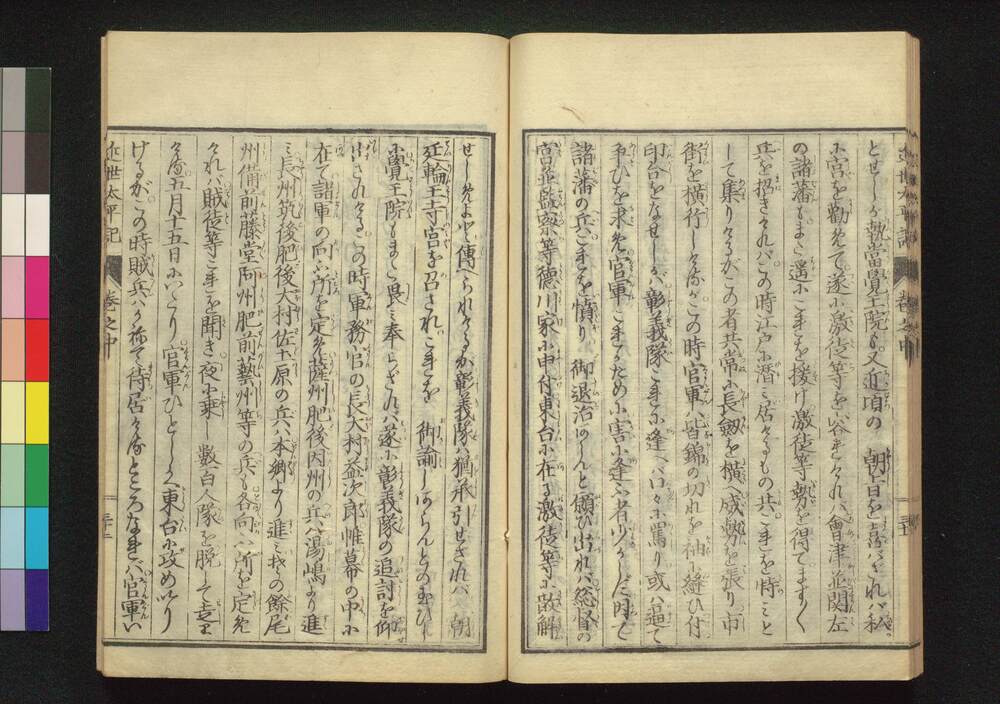 とせしが執當覺王院も又近頃の 朝旨を喜バざれバ私
に宮を勸めて遂に激徒等を
の諸藩もまた遥にこれを援け激徒等勢を得てます〱
兵を招きけれバこの時江戸に潜ミ居たるもの共これを恃ミと
して集りけるがこの者共常に長劔を横へ威勢を張り市
街を横行しけるがこの時官軍ハ皆錦の切れを袖に縫ひ付
印合をなせしが彰義隊これに逢へバ口々に罵り或ハ逼て
争ひを求め官軍これがために害に逢ふ者少からだ
諸藩の兵これを憤り 御退治あらんと願ひ出れバ総督の
宮並監察等徳川家に申付東台に在る激徒等に散解
せしめよと傳へられけるが彰義隊ハ猶承引せざれバ 朝
廷輪王寺宮を召されこれを 御諭しあらんとの
に覺王院もまた畏ミ奉らざれバ遂に彰義隊の追討を仰
出されけるこの時軍務官の長大村益次郎帷幕の中に
在て諸軍の向ふ所を定め薩州肥後因州の兵ハ湯嶋より進
ミ長州筑後肥後大村佐土原の兵ハ本郷より進ミ其餘尾
州備前藤堂阿州肥前藝州等の兵も各向ふ所を定め
けれバ賊徒等これを聞き夜に乗し数百人隊を脱して走り
ける五月十五日にいたり官軍ひとしく東台に攻めいり
けるがこの時賊兵ハかねて待居けるところなれバ官軍い
近世太平記 巻之中